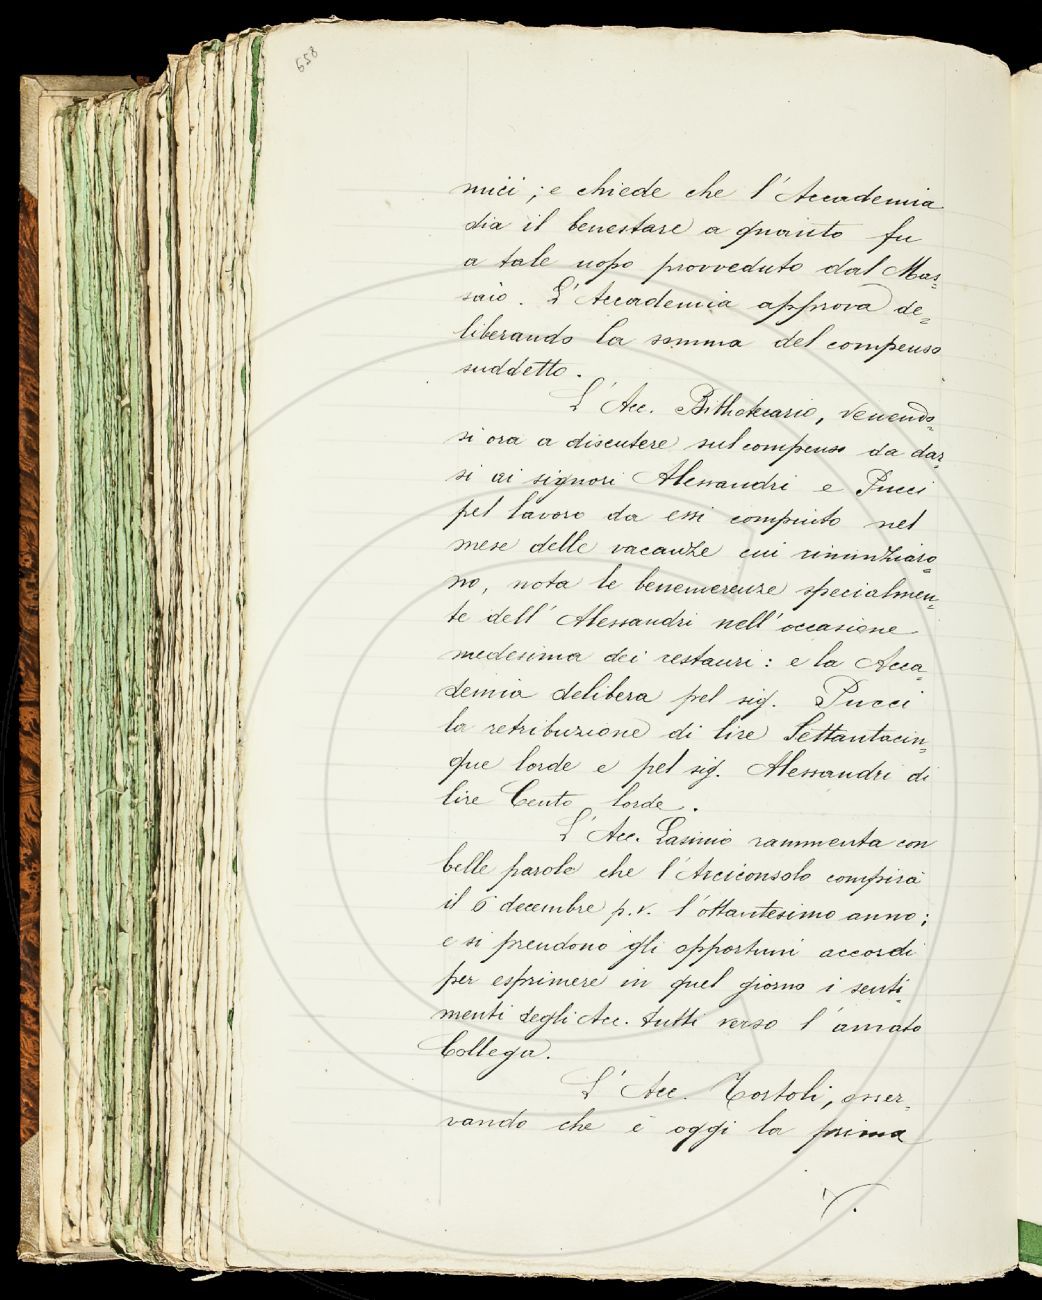 658
mici; e chiede che l'Accademia
dia il benestare a quanto fu
a tale uopo provveduto dal Mas=
saio. L'Accademia approva de=
liberando la somma del compenso
suddetto.
L'Acc. Bibliotecario, venendo=
si ora a discutere sul compenso da dar=
si ai signori Alessandri e Pucci
pel lavoro da essi compiuto nel
mese delle vacanze cui rinunziaro=
no, nota le benemerenze specialmen=
te dell'Alessandri nell'occasione
medesima dei restauri: e la Acca=
demia delibera pel sig. Pucci
la retribuzione di lire Settantacin=
que lorde e pel sig. Alessandri di
lire Cento lorde.
L'Acc. Lasinio rammenta con
belle parole che l'Arciconsolo compirà
il 6 decembre p.v. l'ottantesimo anno;
e si prendono gli opportuni accordi
per esprimere in quel giorno i senti=
menti degli Acc. tutti verso l'amato
Collega.
L'Acc. Tortoli, osser=
vando che è oggi la prima